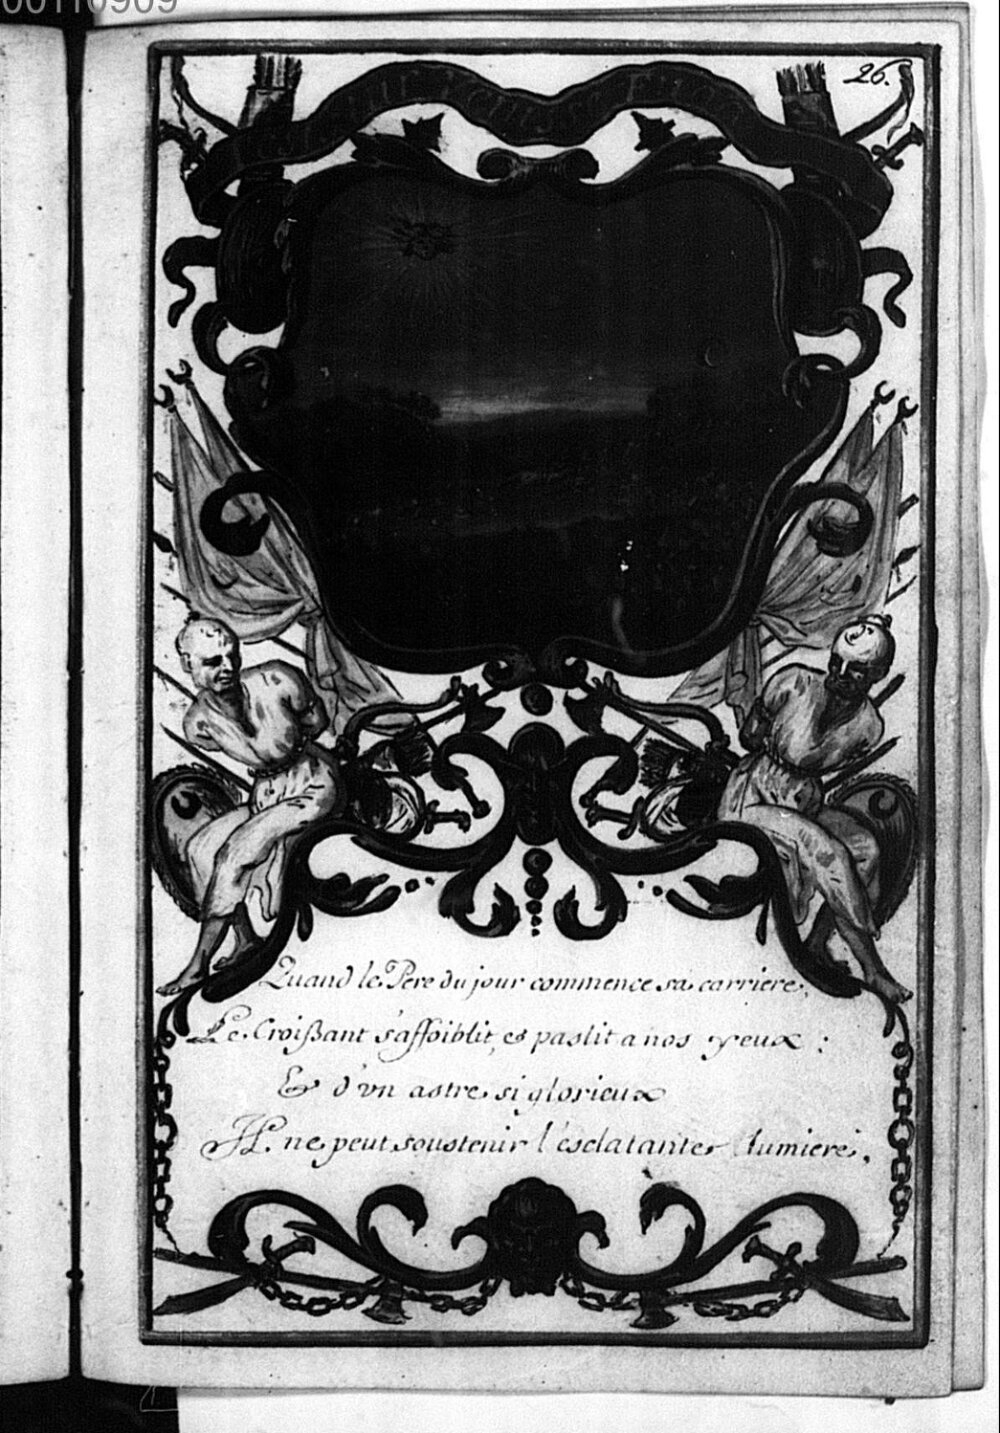 00110909
26.
Quand le Pere du jour commence sa carriere,
Le Croißant s'affoiblit, et paslit a nos yeux :
Et d'vn astre si glorieux
Il ne peut soustenir l'esclatante lumiere.